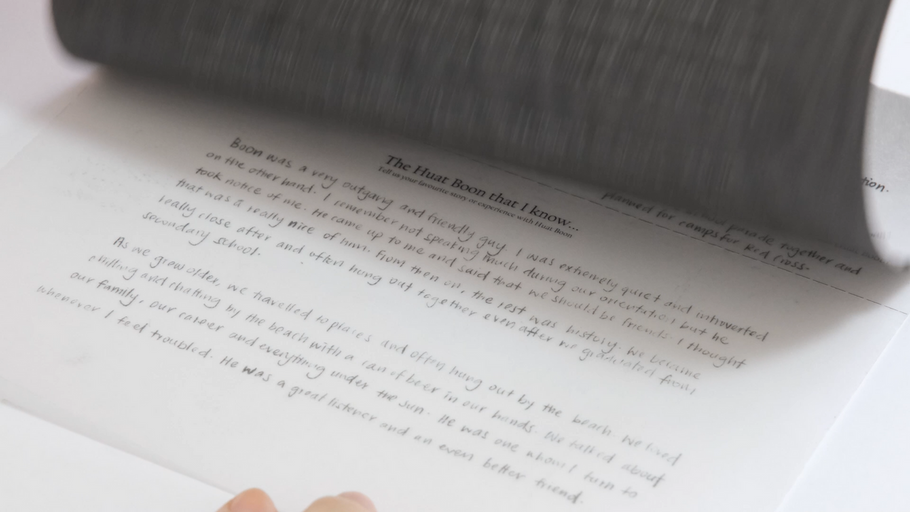 The Huat Boon that I know...
Tell us your favourite story or experience with Huat Boon
Boon was a very outgoing and friendly guy. I was extremely quiet and introverted
on the other hand. I remember not speaking much during our orientation but he
took notice of me. He came up to me and said that we should be friends. I thought
that was a really nice of him. From then on, the rest was history. We became
really close after and often hung out together even after we graduated from
secondary school.
As we grow older, we travelled to places and often hung out by the beach. We
chilling and chatting by the beach with a can of beer in our hands. We talked about
our family, our career and everything under the sun. He was one whom I turn to
whenever I feel troubled. He was a great listener and an even better friend.
parade together and
planned for camps for Red Cross.
tion.